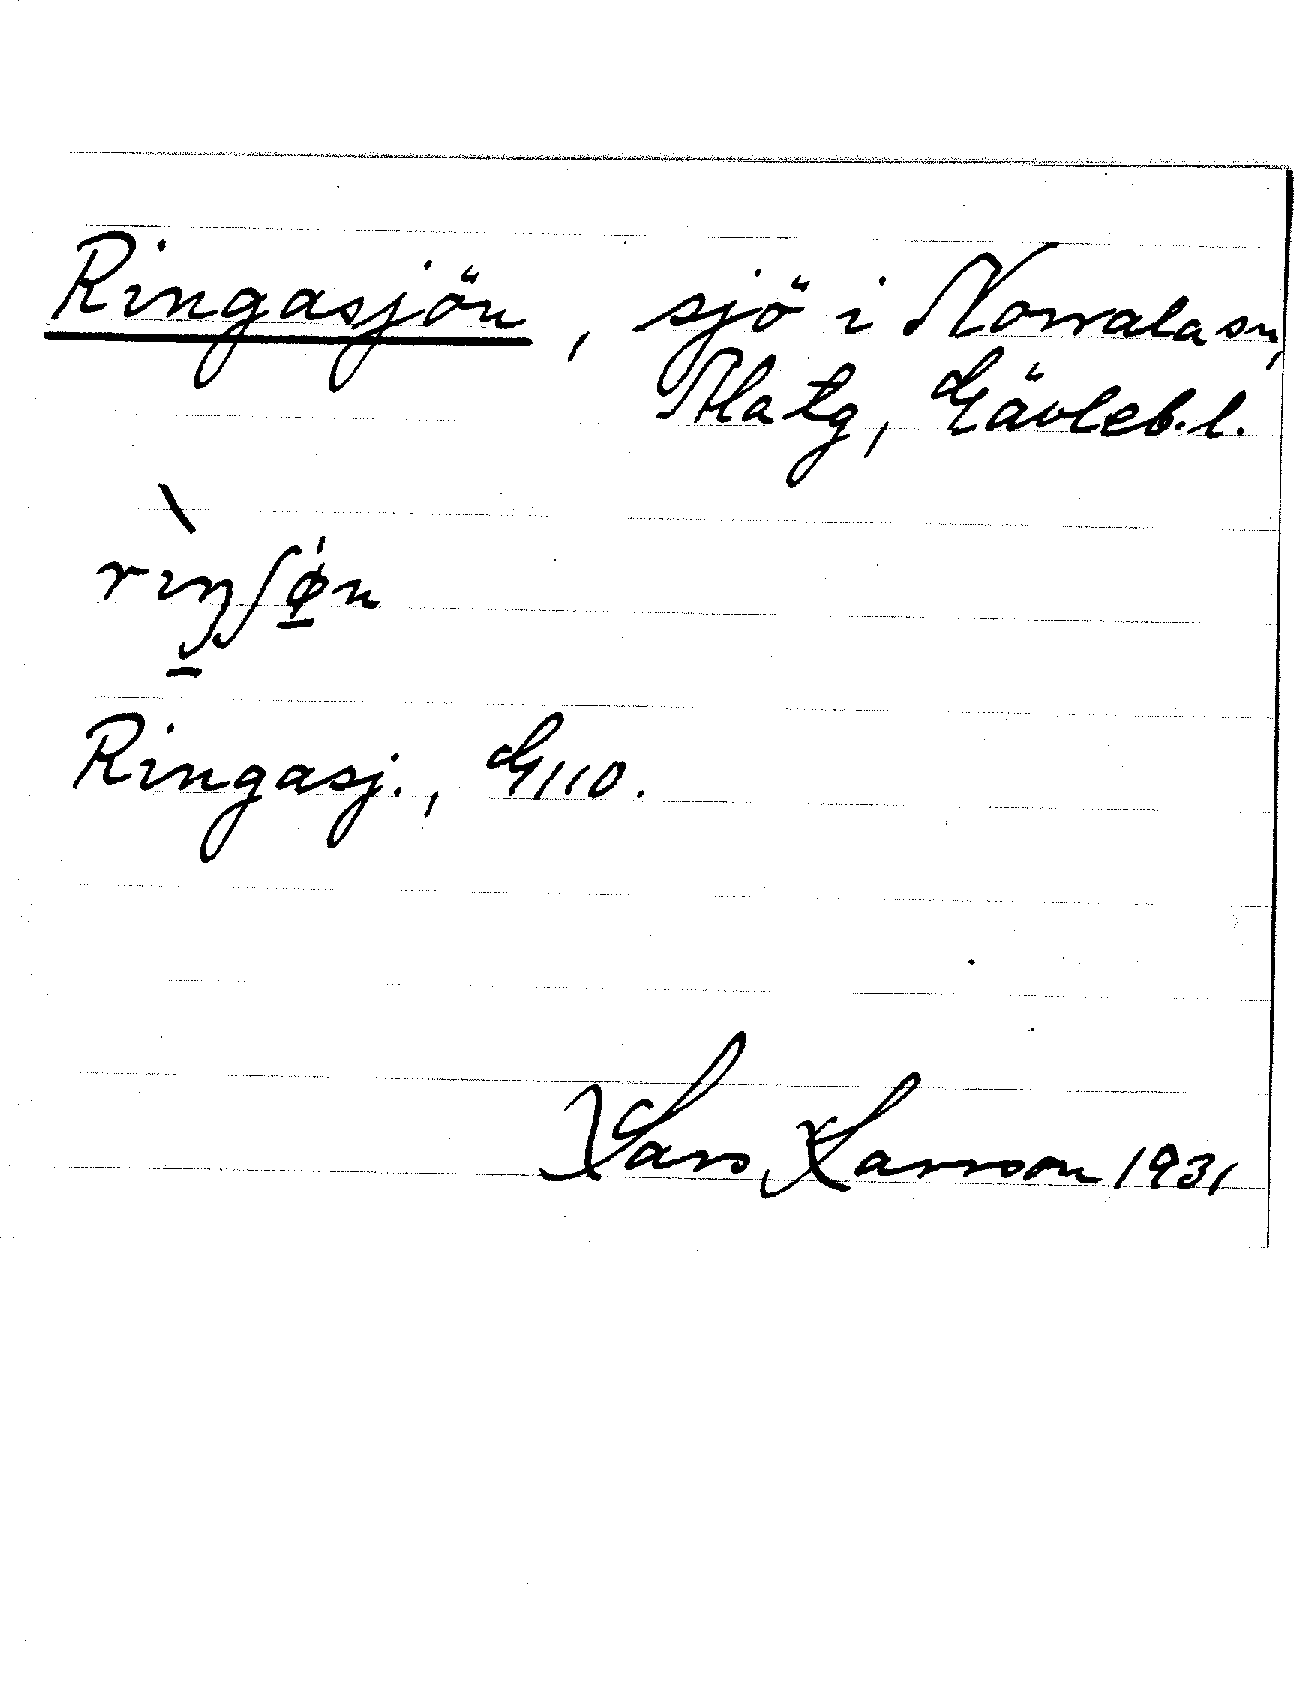 Ringasjön, sjö i Norrala sn,
Ala tg, Gävleb. l.
rìŋʃø̀n
Ringasj., G110.
Lars Larsson 1931